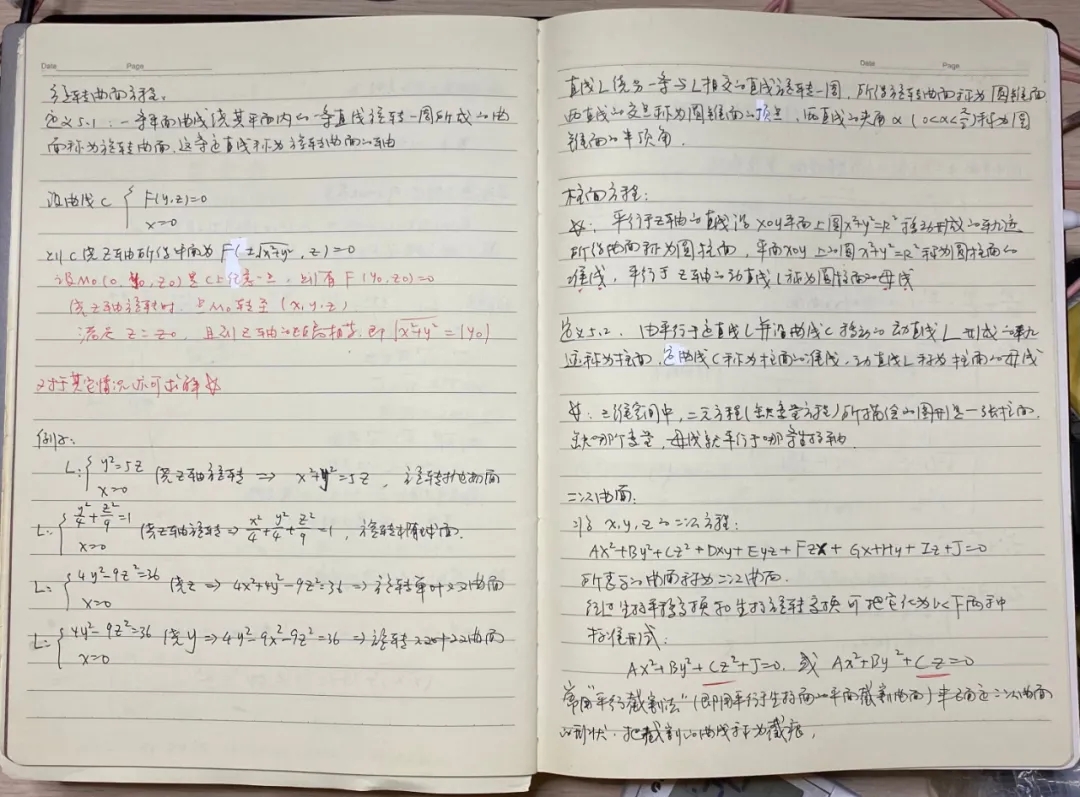 Date Page
旋转曲面方程。
定义5.1:一条平面曲线绕其平面内的一条直线旋转一周所成的曲
面称为旋转曲面,这条定直线称为旋转曲面的轴
设曲线C { F(y,z)=0
x=0
则C绕Z轴所得曲面为 F(±√x²+y², z)=0
设M₀(0, y₀, z₀)是C上任意一点,则有 F(y₀,z₀)=0
绕Z轴旋转时,点M₀转至(x,y,z)
满足 z=z₀,且到Z轴的距离相等,即√x²+y²=|y₀|
对于其它情况亦可求解
例如:
L:{ y²=5z
x=0
绕Z轴旋转 ⇒ x²+y²=5z,旋转抛物面
L:{ y²/4+z²/9=1
x=0
绕Z轴旋转⇒ x²/4+y²/4+z²/9=1,旋转椭球面.
L:{ 4y²-9z²=36
x=0
绕z ⇒ 4x²+4y²-9z²=36 ⇒ 旋转单叶双曲面
L:{ 4y²-9z²=36
x=0
绕y ⇒ 4y²-9x²-9z²=36 ⇒ 旋转双叶双曲面
Date Page
直线L绕另一条与L相交的直线旋转一周,所得旋转曲面称为圆锥面
两直线的交点称为圆锥面的顶点,两直线的夹角α(0<α<π/2)称为圆
锥面的半顶角.
柱面方程:
平行于Z轴的直线沿xoy平面上圆x²+y²=R²移动形成的轨迹
所得曲面称为圆柱面,平面xoy上的圆x²+y²=R²称为圆柱面的
准线,平行于Z轴的动直线L称为圆柱面的母线
定义5.2.由平行于定直线L并沿曲线C移动的动直线L形成的轨
迹称为柱面,定曲线C称为柱面的准线,动直线L称为柱面的母线
三维空间中,二元方程(缺变量方程)所描绘的图形是一张柱面.
缺哪个变量,母线就平行于哪条坐标轴.
二次曲面:
x,y,z的二次方程:
Ax²+By²+Cz²+Dxy+Eyz+Fzx+Gx+Hy+Iz+J=0
所表示的曲面称为二次曲面.
经过坐标平移变换和坐标旋转变换可把它化为以下两种
标准形式:
Ax²+By²+Cz²+J=0. 或 Ax²+By²+Cz=0
常用"平行截割法"(即用平行于坐标面的平面截割曲面)来确定二次曲面
的形状.把截割的曲线称为截痕.